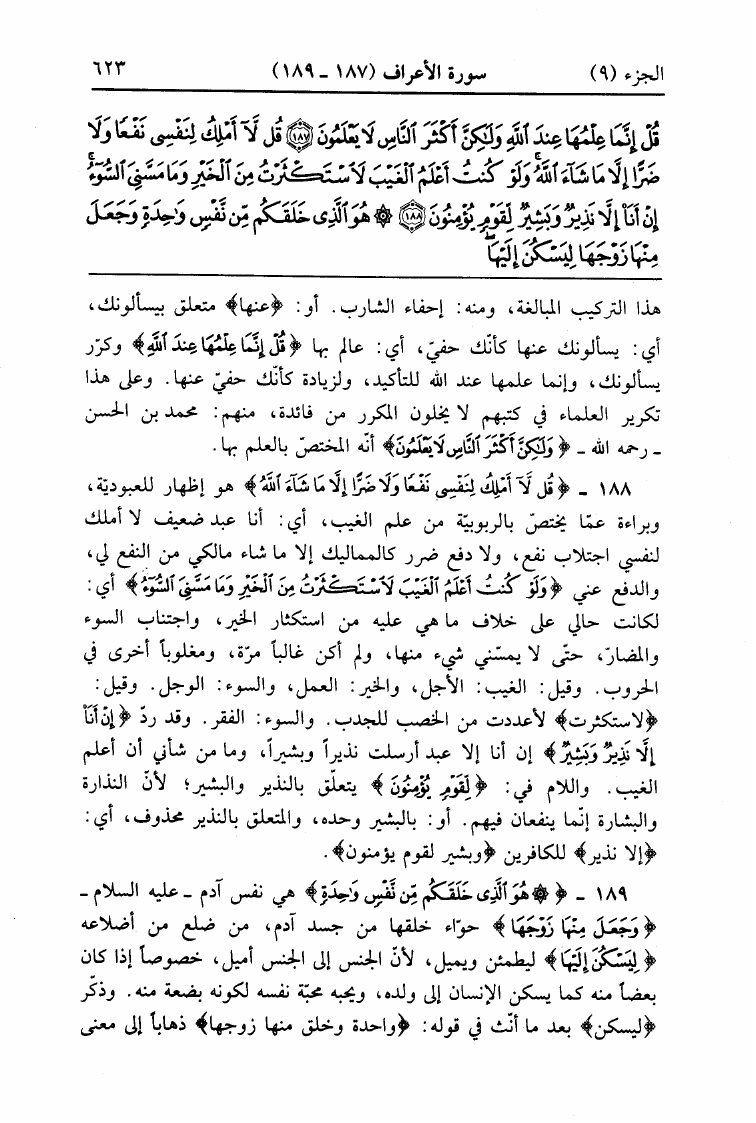 الجزء (٩) سورة الأعراف (١٨٧ - ١٨٩) ٦٢٣
قُلْ إِنَّمَا عِلْمُهَا عِندَ ٱللَّهِ وَلَٰكِنَّ أَكْثَرَ ٱلنَّاسِ لَا يَعْلَمُونَ ﴿١٨٧﴾ قُل لَّآ أَمْلِكُ لِنَفْسِى نَفْعًا وَلَا
ضَرًّا إِلَّا مَا شَآءَ ٱللَّهُ ۚ وَلَوْ كُنتُ أَعْلَمُ ٱلْغَيْبَ لَٱسْتَكْثَرْتُ مِنَ ٱلْخَيْرِ وَمَا مَسَّنِىَ ٱلسُّوٓءُ ۚ
إِنْ أَنَا۠ إِلَّا نَذِيرٌ وَبَشِيرٌ لِّقَوْمٍ يُؤْمِنُونَ ﴿١٨٨﴾ ۞ هُوَ ٱلَّذِى خَلَقَكُم مِّن نَّفْسٍ وَٰحِدَةٍ وَجَعَلَ
مِنْهَا زَوْجَهَا لِيَسْكُنَ إِلَيْهَا ۖ
هذا التركيب المبالغة، ومنه: إحفاء الشارب. أو: ﴿عنها﴾ متعلق بيسألونك،
أي: يسألونك عنها كأنّك حفيّ، أي: عالم بها ﴿قُلْ إِنَّمَا عِلْمُهَا عِندَ ٱللَّهِ﴾ وكرّر
يسألونك، وإنما علمها عند الله للتأكيد، ولزيادة كأنّك حفيّ عنها. وعلى هذا
تكرير العلماء في كتبهم لا يخلون المكرر من فائدة، منهم: محمد بن الحسن
ـ رحمه الله ـ ﴿وَلَٰكِنَّ أَكْثَرَ ٱلنَّاسِ لَا يَعْلَمُونَ﴾ أنّه المختصّ بالعلم بها.
١٨٨ ـ ﴿قُل لَّآ أَمْلِكُ لِنَفْسِى نَفْعًا وَلَا ضَرًّا إِلَّا مَا شَآءَ ٱللَّهُ﴾ هو إظهار للعبوديّة،
وبراءة عمّا يختصّ بالربوبيّة من علم الغيب، أي: أنا عبد ضعيف لا أملك
لنفسي اجتلاب نفع، ولا دفع ضرر كالمماليك إلا ما شاء مالكي من النفع لي،
والدفع عني ﴿وَلَوْ كُنتُ أَعْلَمُ ٱلْغَيْبَ لَٱسْتَكْثَرْتُ مِنَ ٱلْخَيْرِ وَمَا مَسَّنِىَ ٱلسُّوٓءُ﴾ أي:
لكانت حالي على خلاف ما هي عليه من استكثار الخير، واجتناب السوء
والمضارّ، حتّى لا يمسّني شيء منها، ولم أكن غالباً مرّة، ومغلوباً أخرى في
الحروب. وقيل: الغيب: الأجل، والخير: العمل، والسوء: الوجل. وقيل:
﴿لاستكثرت﴾ لأعددت من الخصب للجدب. والسوء: الفقر. وقد ردّ ﴿إِنْ أَنَا۠
إِلَّا نَذِيرٌ وَبَشِيرٌ﴾ إن أنا إلا عبد أرسلت نذيراً وبشيراً، وما من شأني أن أعلم
الغيب. واللام في: ﴿لِّقَوْمٍ يُؤْمِنُونَ﴾ يتعلّق بالنذير والبشير؛ لأنّ النذارة
والبشارة إنّما ينفعان فيهم. أو: بالبشير وحده، والمتعلق بالنذير محذوف، أي:
﴿إلا نذير﴾ للكافرين ﴿وبشير لقوم يؤمنون﴾.
١٨٩ ـ ﴿۞ هُوَ ٱلَّذِى خَلَقَكُم مِّن نَّفْسٍ وَٰحِدَةٍ﴾ هي نفس آدم ـ عليه السلام ـ
﴿وَجَعَلَ مِنْهَا زَوْجَهَا﴾ حوّاء خلقها من جسد آدم، من ضلع من أضلاعه
﴿لِيَسْكُنَ إِلَيْهَا﴾ ليطمئن ويميل، لأنّ الجنس إلى الجنس أميل، خصوصاً إذا كان
بعضاً منه كما يسكن الإنسان إلى ولده، ويحبه محبّة نفسه لكونه بضعة منه. وذكّر
﴿ليسكن﴾ بعد ما أنّث في قوله: ﴿واحدة وخلق منها زوجها﴾ ذهاباً إلى معنى